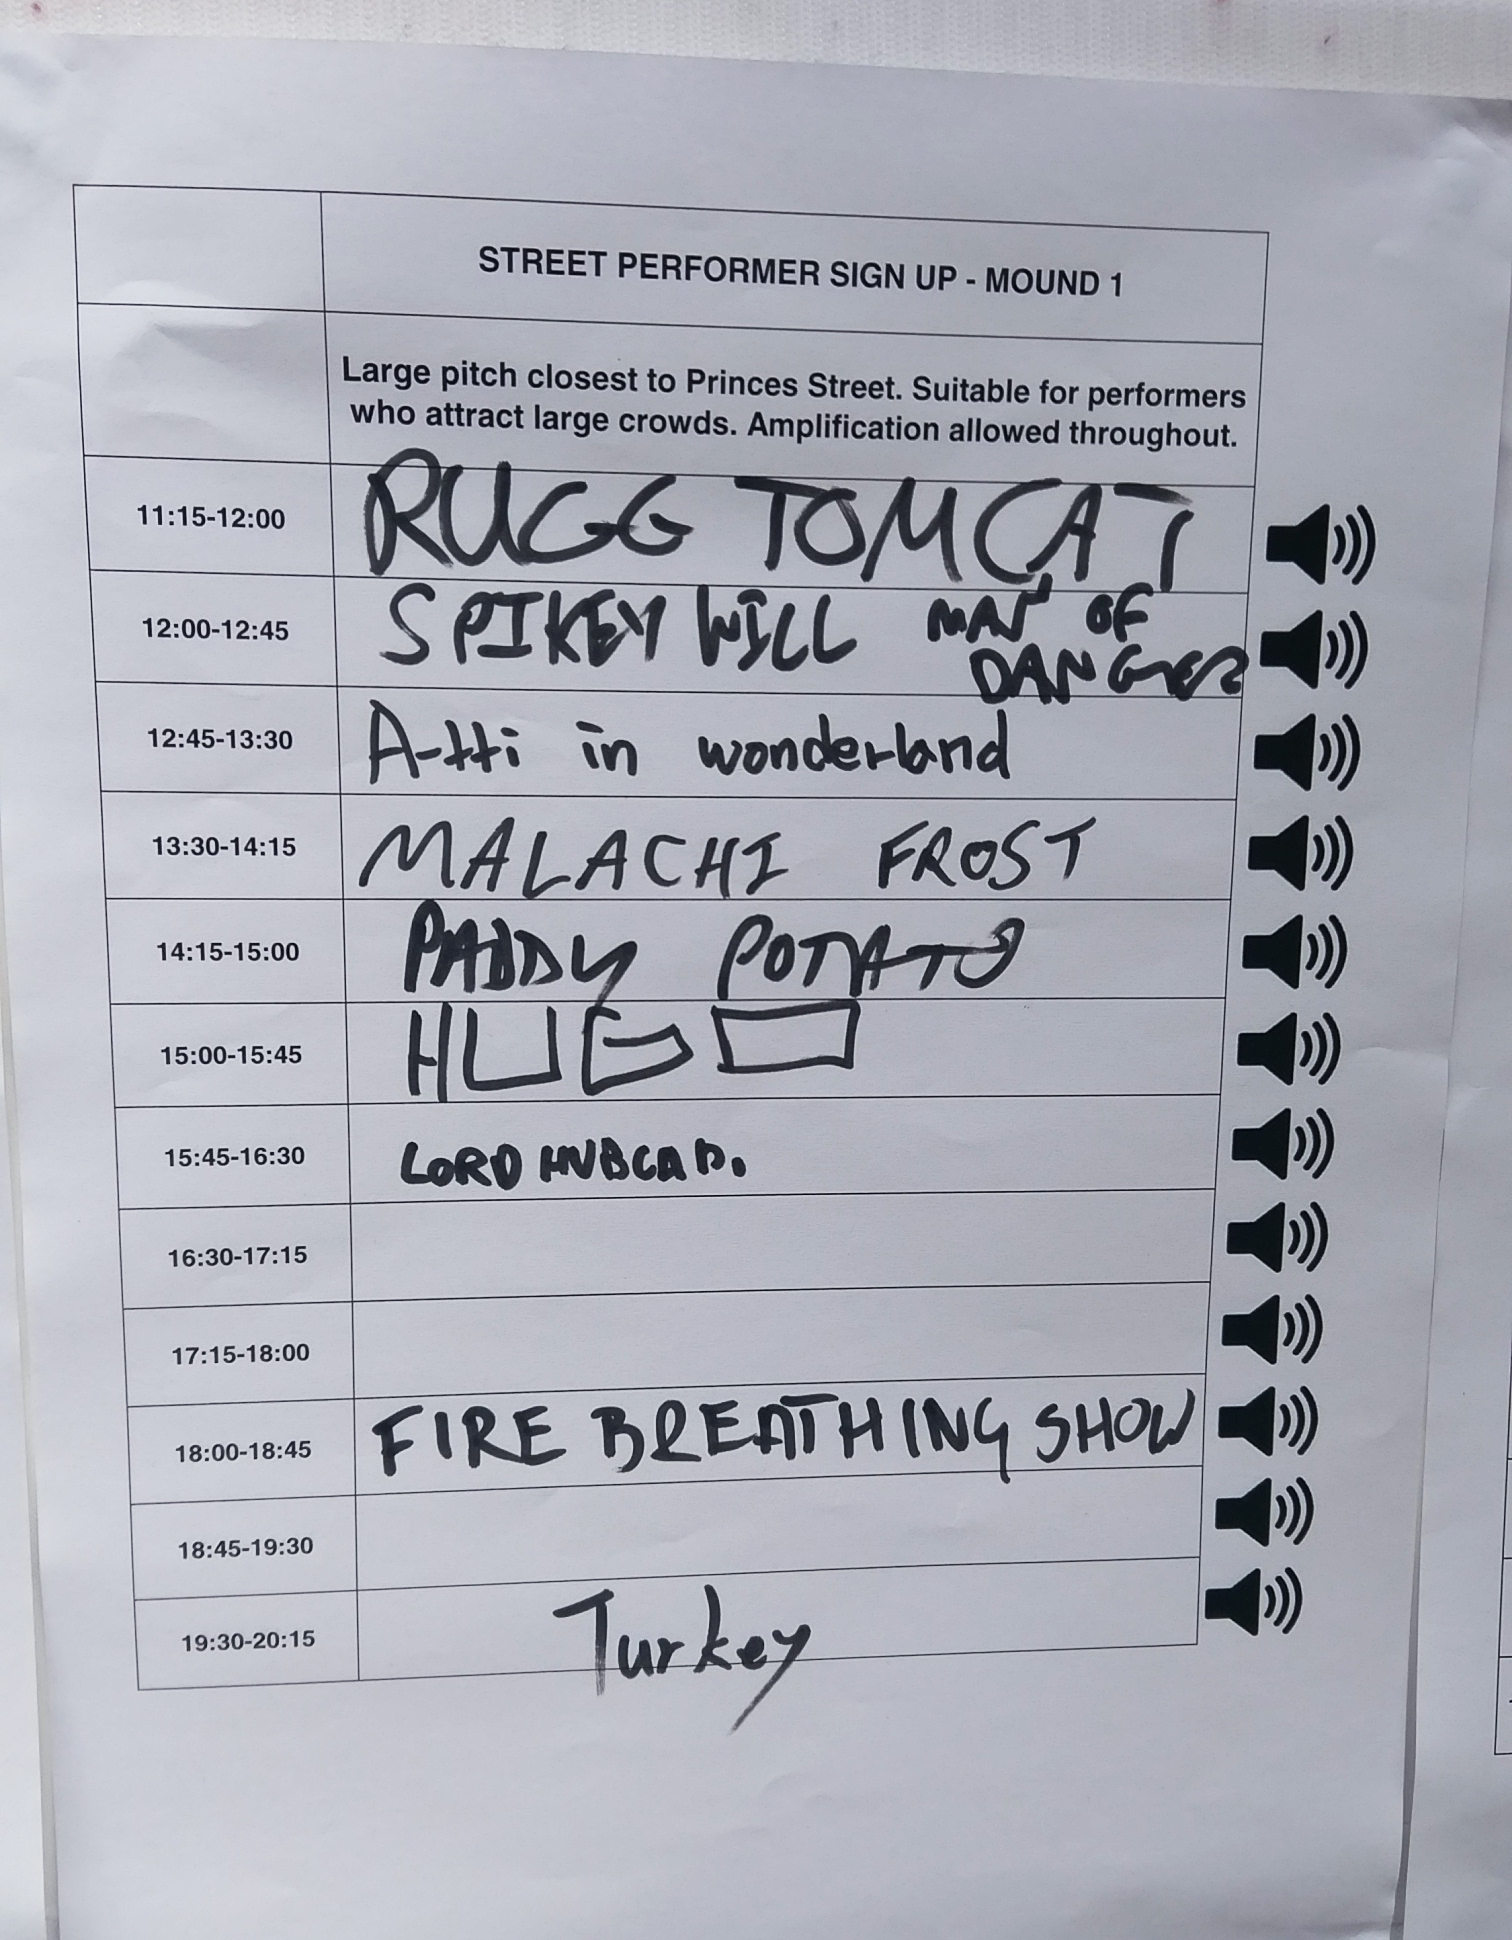 STREET PERFORMER SIGN UP - MOUND 1
Large pitch closest to Princes Street. Suitable for performers
who attract large crowds. Amplification allowed throughout.
11:15-12:00 RUGG TOMCAT
12:00-12:45 SPIKEY WILL MAN OF
DANGER
12:45-13:30 A-tti in wonderland
13:30-14:15 MALACHI FROST
14:15-15:00 PADDY POTATO
15:00-15:45 HUGO
15:45-16:30 LORD HUBCAP.
16:30-17:15
17:15-18:00
18:00-18:45 FIRE BREATHING SHOW
18:45-19:30
19:30-20:15 Turkey